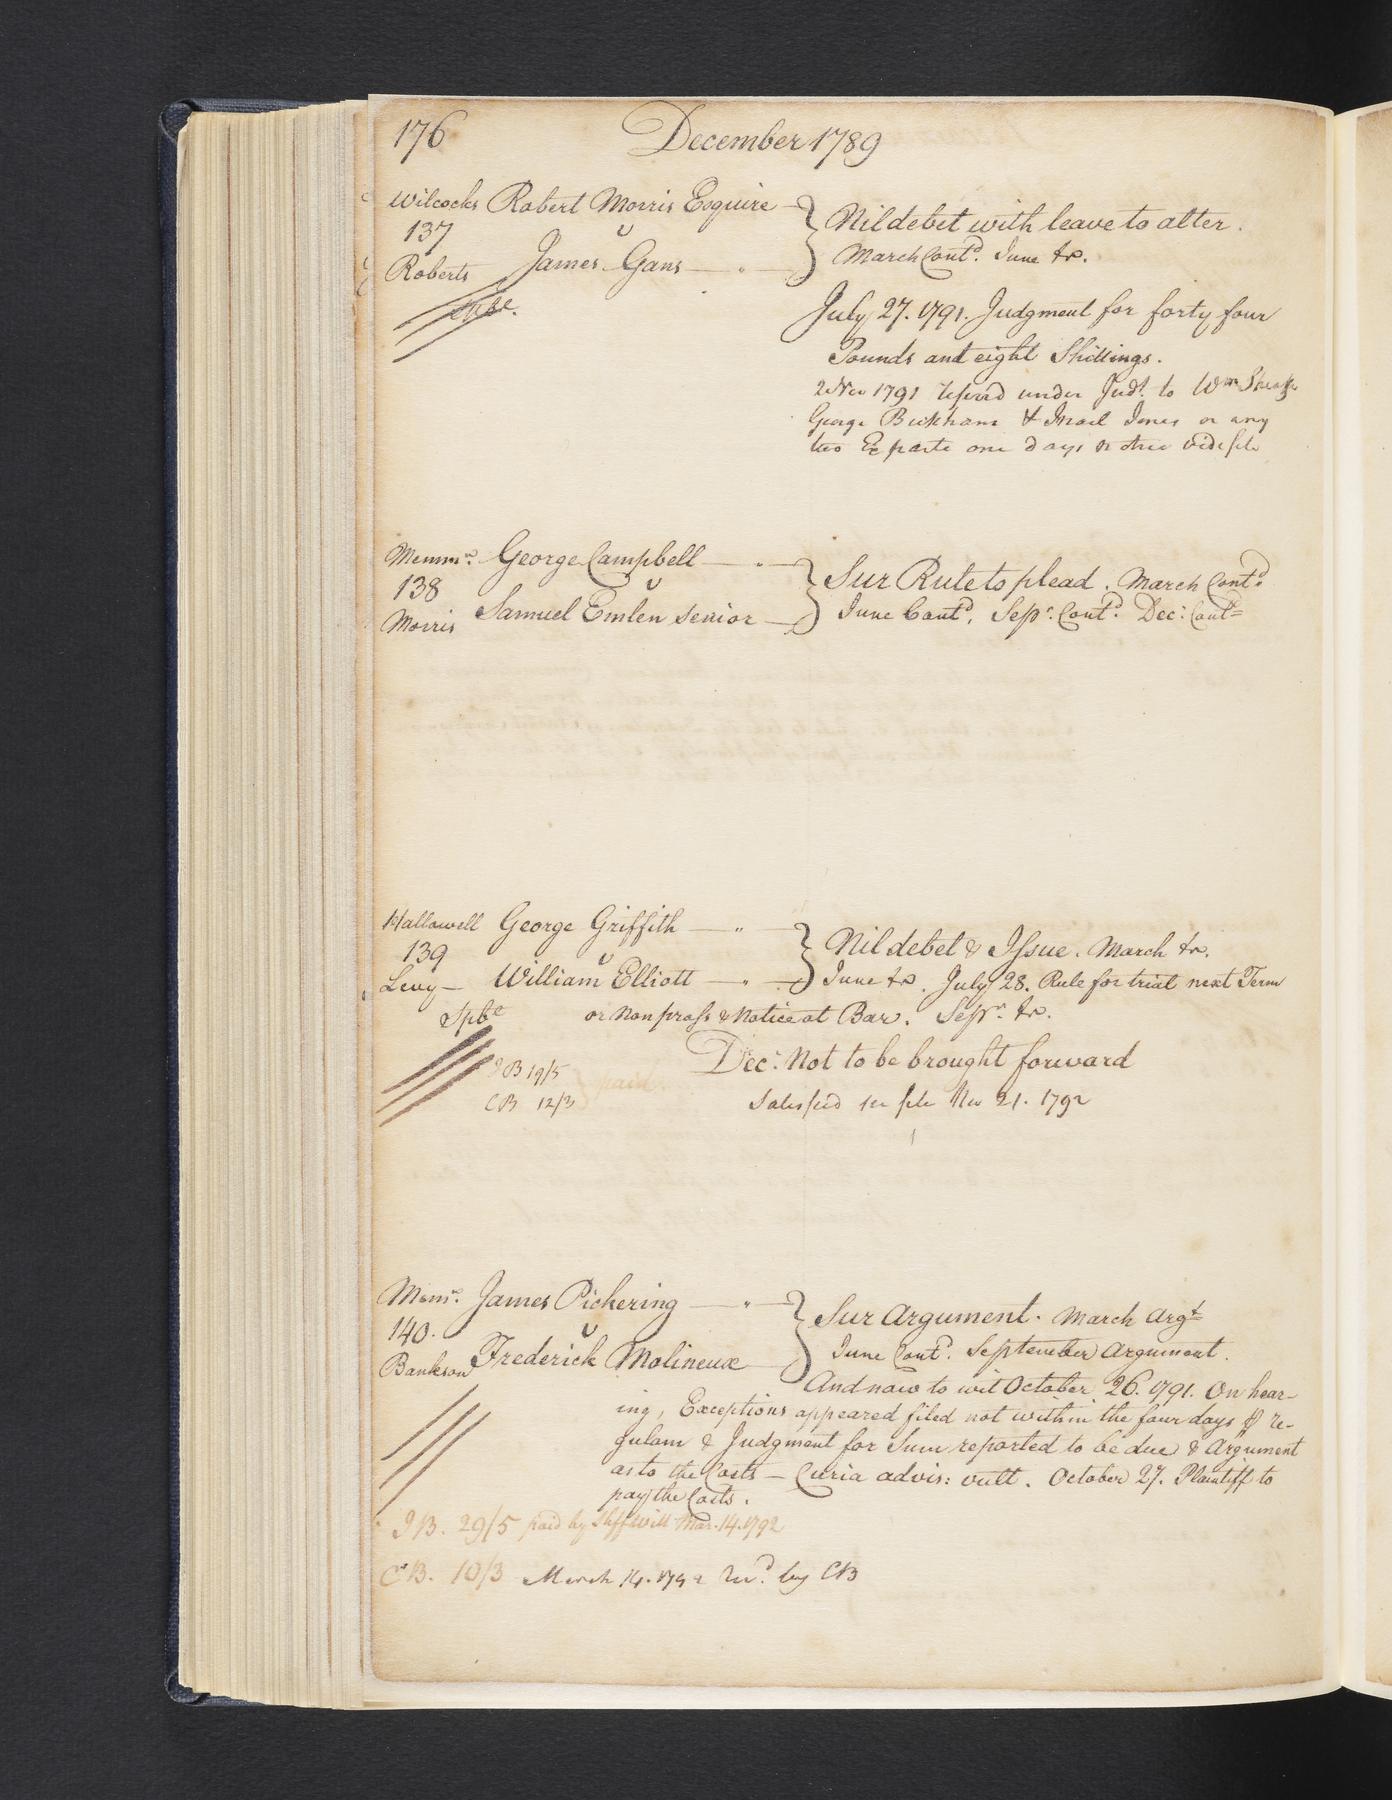 176 December 1789
Wilcocks Robert Morris Esquire
137 v
Roberts James Gans
Nil debet with leave to alter.
March Contd. June tr.
July 27. 1791. Judgment for forty four
Pounds and eight Shillings.
2 Nov 1791 referrd under Judt. to Wm
George Bickham & Israel Jones or any
two Ex parte one days notice vide file
George Campbell
138 v
Morris Samuel Emlen senior
Sur Rule to plead. March Contd.
June Contd. Sepr. Contd. Dec: Contd
Hallowell George Griffith
139 v
Levy William Elliott
Nil debet & Issue. March tr.
June tr. July 28. Rule for trial next Term
Spbe or Non pross & Notice at Bar. Sepr. tr.
Dec: Not to be brought forward
J B 19/5
CB 12/3 paid
Satisfied per file Nov 21. 1792
James Pickering
140. v
Bankson Frederick Molineux
Sur Argument. March Argt
June Contd. September Argument.
And now to wit October 26. 1791. On hear-
ing, Exceptions appeared filed not within the four days & re-
gulam & Judgment for Sum reported to be due & Argument
as to the Costs — Curia advis: vult. October 27. Plaintiff to
pay the Costs.
J B. 29/5 paid by Mar. 14. 1792
CB. 10/3 March 14. 1792 recd. by CB